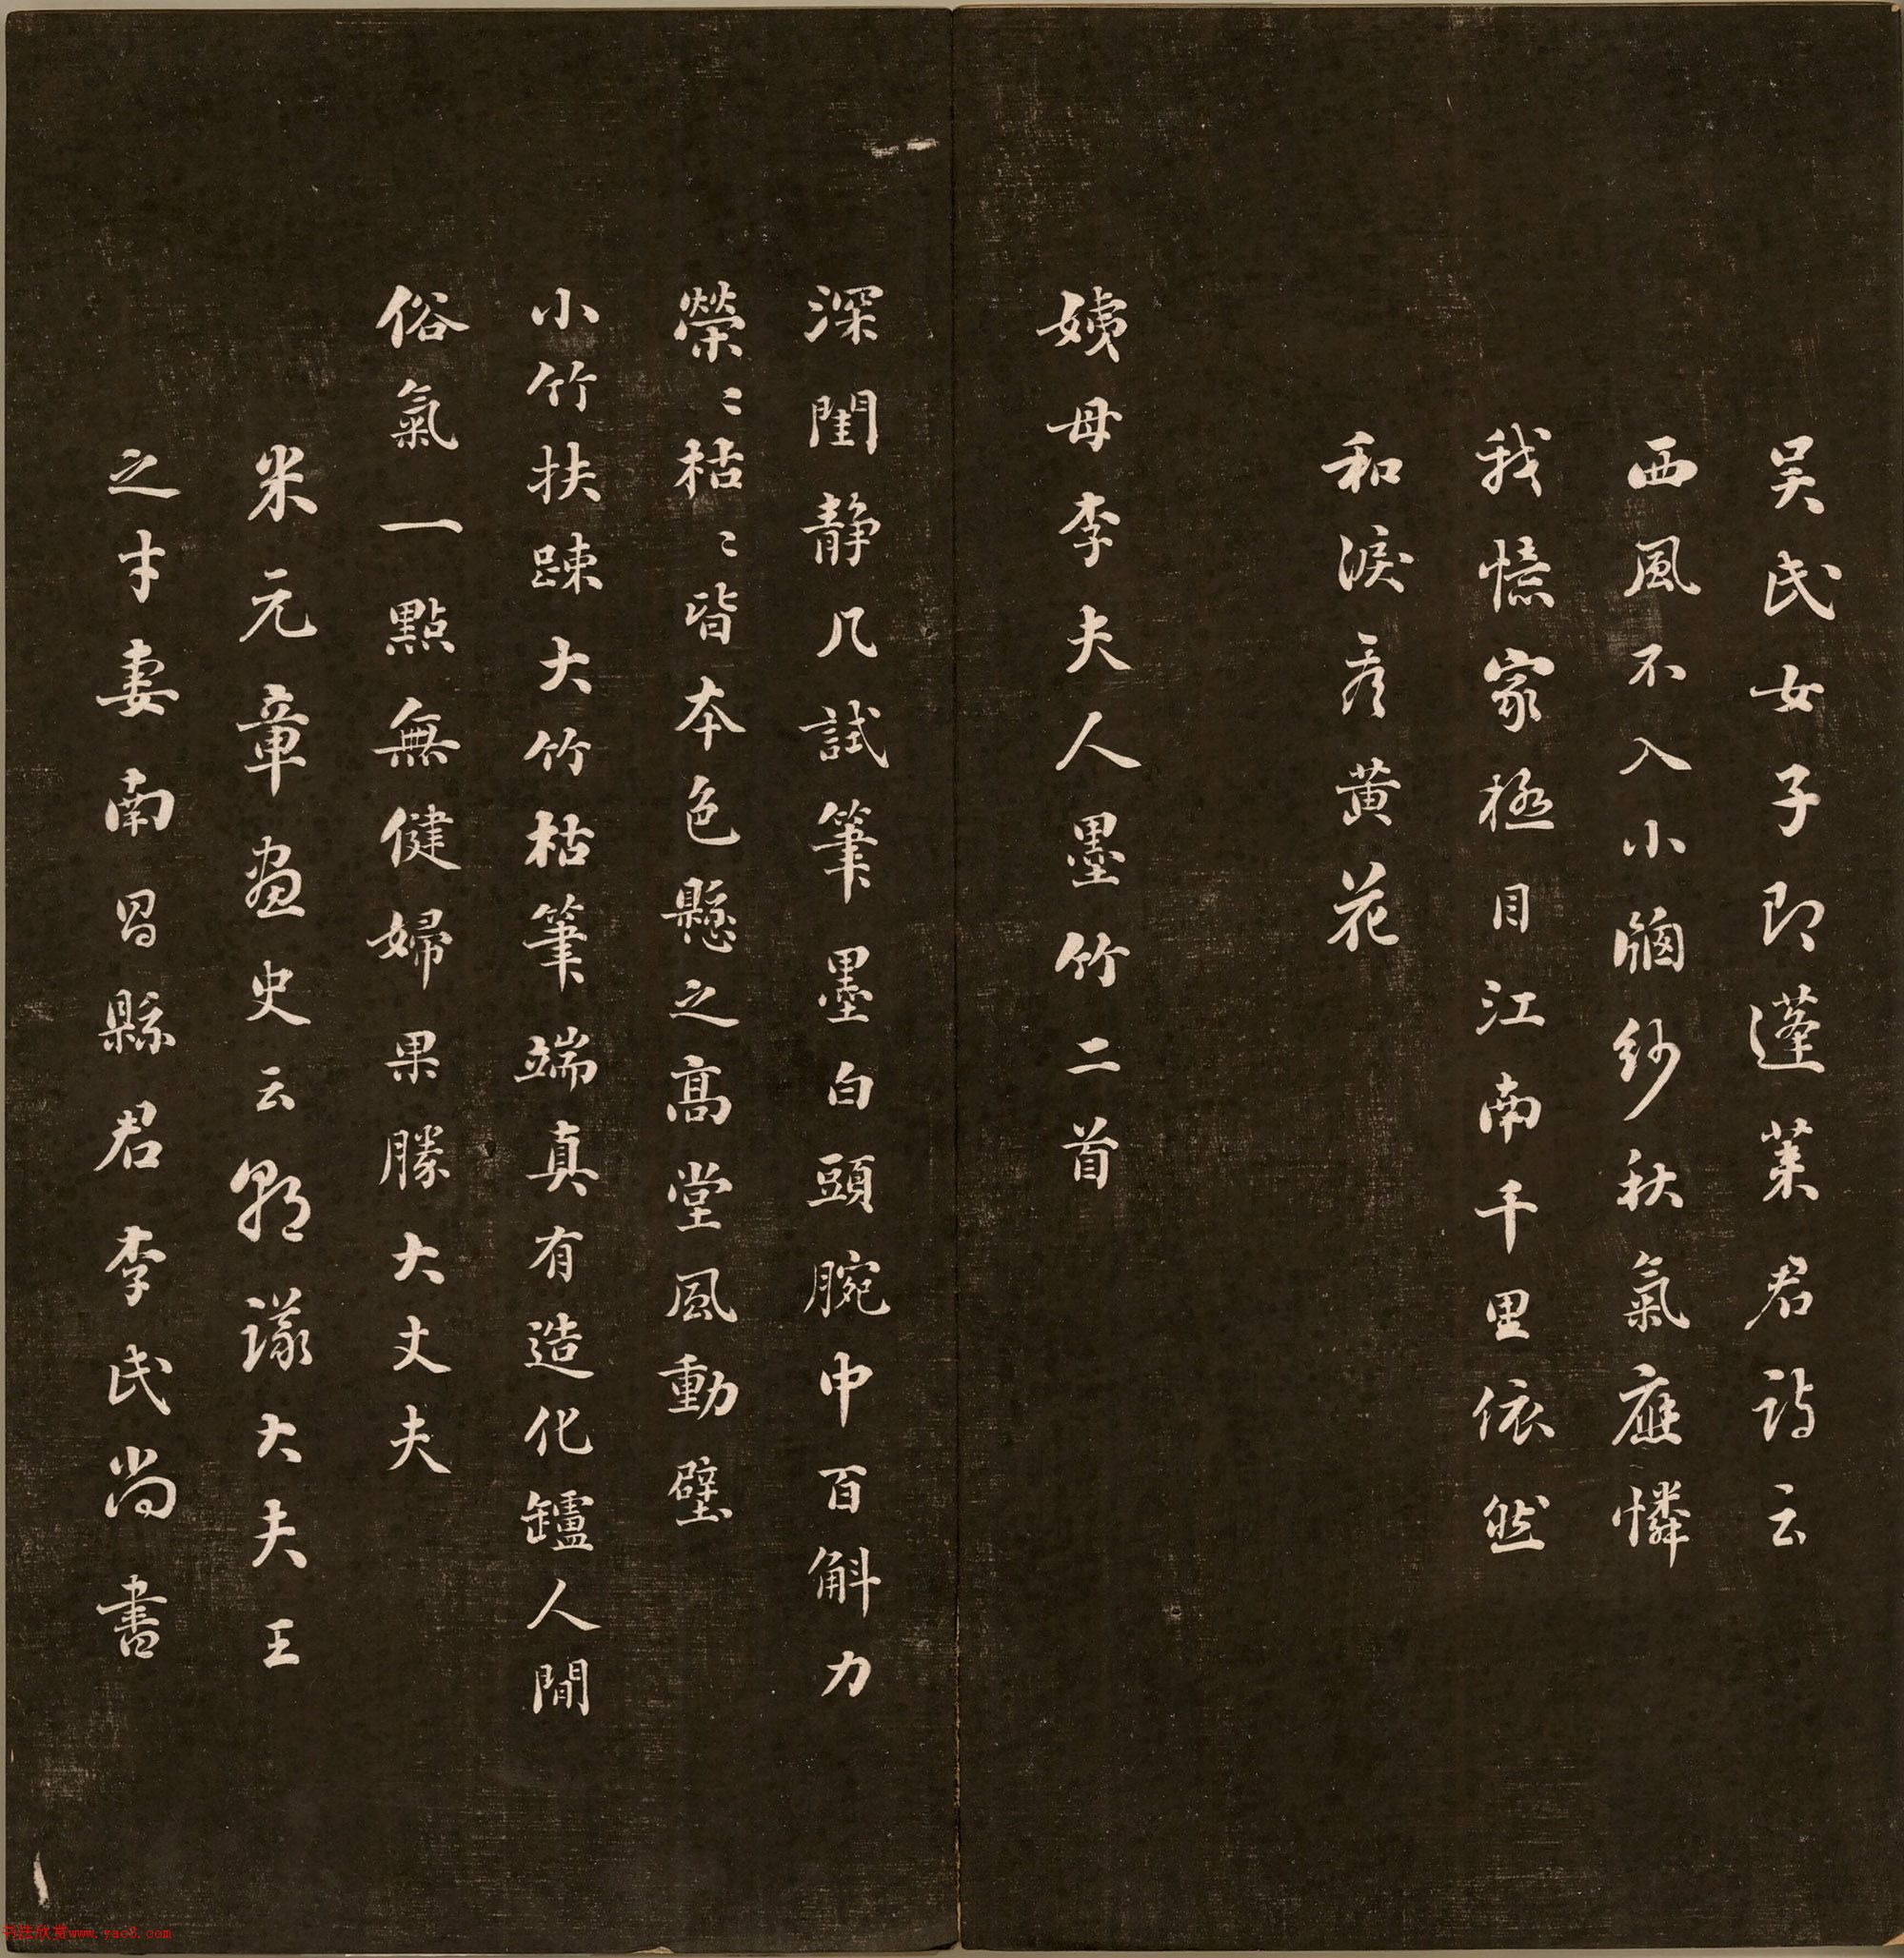 吴氏女子即蓬莱君詩云
西風不入小窗紗秋氣應憐
我憶家極目江南千里依然
和淚看黄花
姨母李夫人墨竹二首
深閨静几試筆墨白頭腕中百斛力
榮〻枯〻皆本色懸之高堂風動壁
小竹扶踈大竹枯筆端真有造化鑪人間
俗氣一點無健婦果勝大丈夫
米元章画史云朝議大夫王
之才妻南昌縣君李氏尚書
书法欣赏www.yac8.com